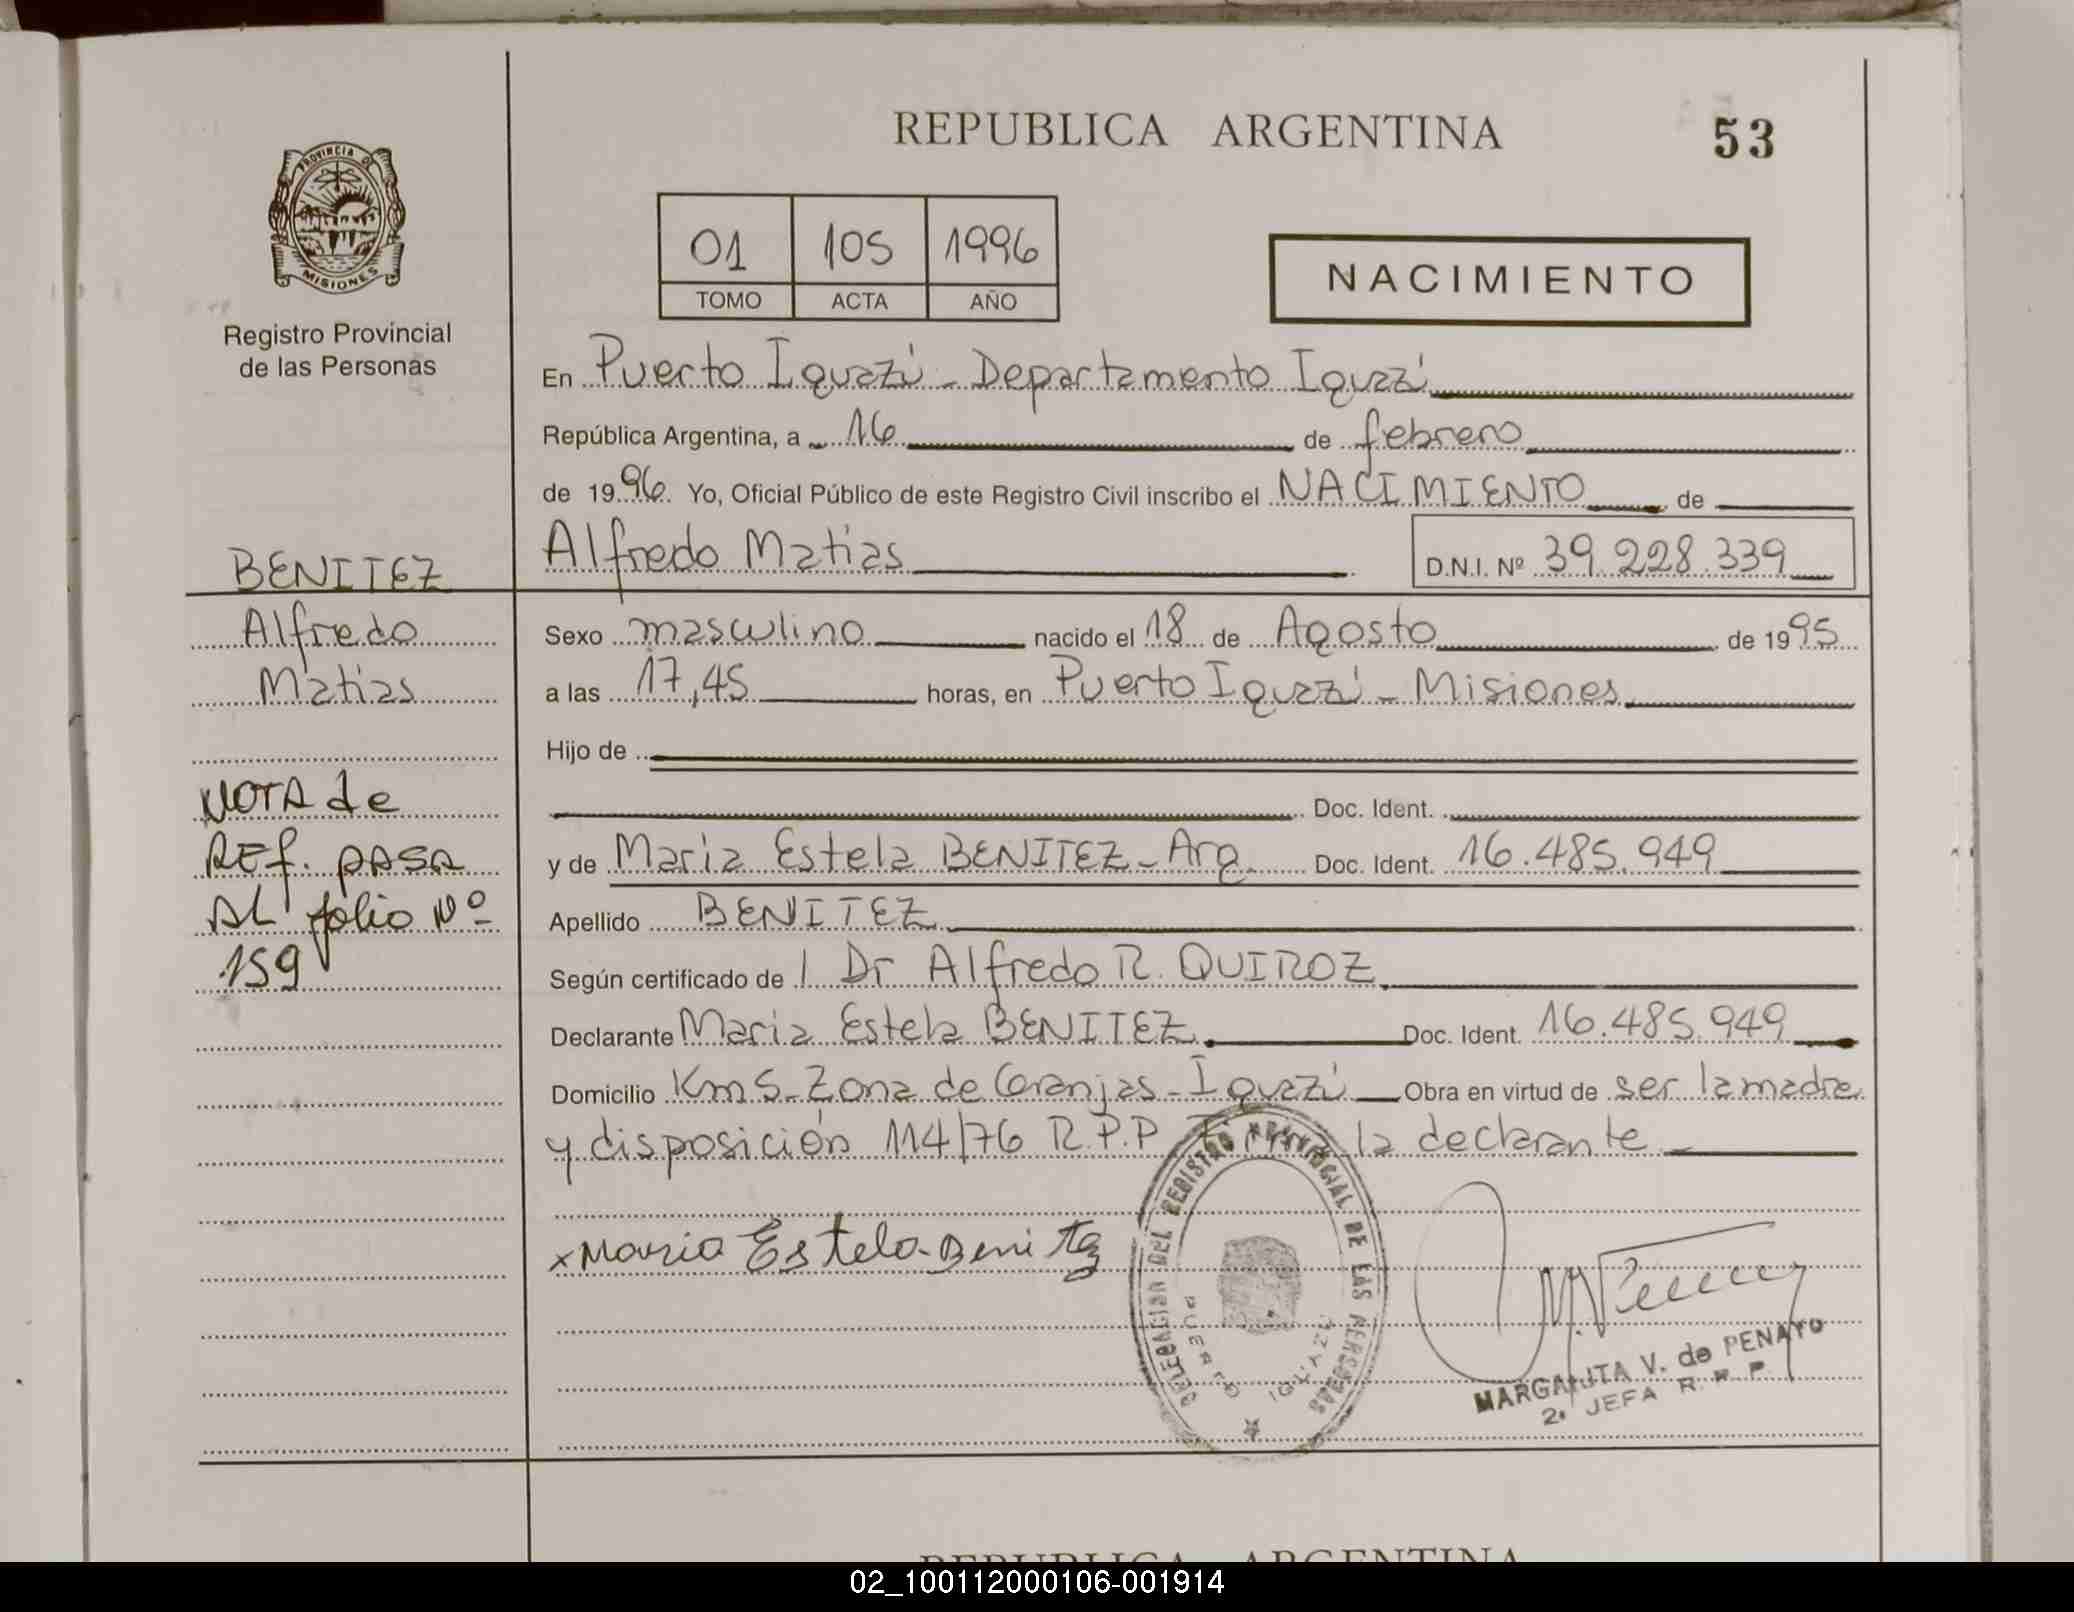 REPUBLICA ARGENTINA
53
PROVINCIA DE
MISIONES
Registro Provincial
de las Personas
01 105 1996
TOMO ACTA AÑO
NACIMIENTO
En Puerto Iguazú - Departamento Iguazú
República Argentina, a 16 de febrero
de 1996 Yo, Oficial Público de este Registro Civil inscribo el NACIMIENTO de
Alfredo Matias
D.N.I. Nº 39.228.339
BENITEZ
Alfredo
Matias
NOTA de
REf. PASA
AL folio Nº
159
Sexo masculino nacido el 18 de Agosto de 1995
a las 17,45 horas, en Puerto Iguazú - Misiones
Hijo de
Doc. Ident.
y de Maria Estela BENITEZ - Arg. Doc. Ident. 16.485.949
Apellido BENITEZ
Según certificado de l Dr Alfredo R. QUIROZ
Declarante Maria Estela BENITEZ Doc. Ident. 16.485.949
Domicilio Km 5 - Zona de Granjas - Iguazú Obra en virtud de ser la madre
y disposición 114/76 R.P.P Firma la declarante
x Maria Estela Benitez
DELEGACION DEL REGISTRO PROVINCIAL DE LAS PERSONAS
PUERTO IGUAZU
MARGARITA V. de PENAYO
2. JEFA R. P. P.
REPUBLICA ARGENTINA
02_100112000106-001914